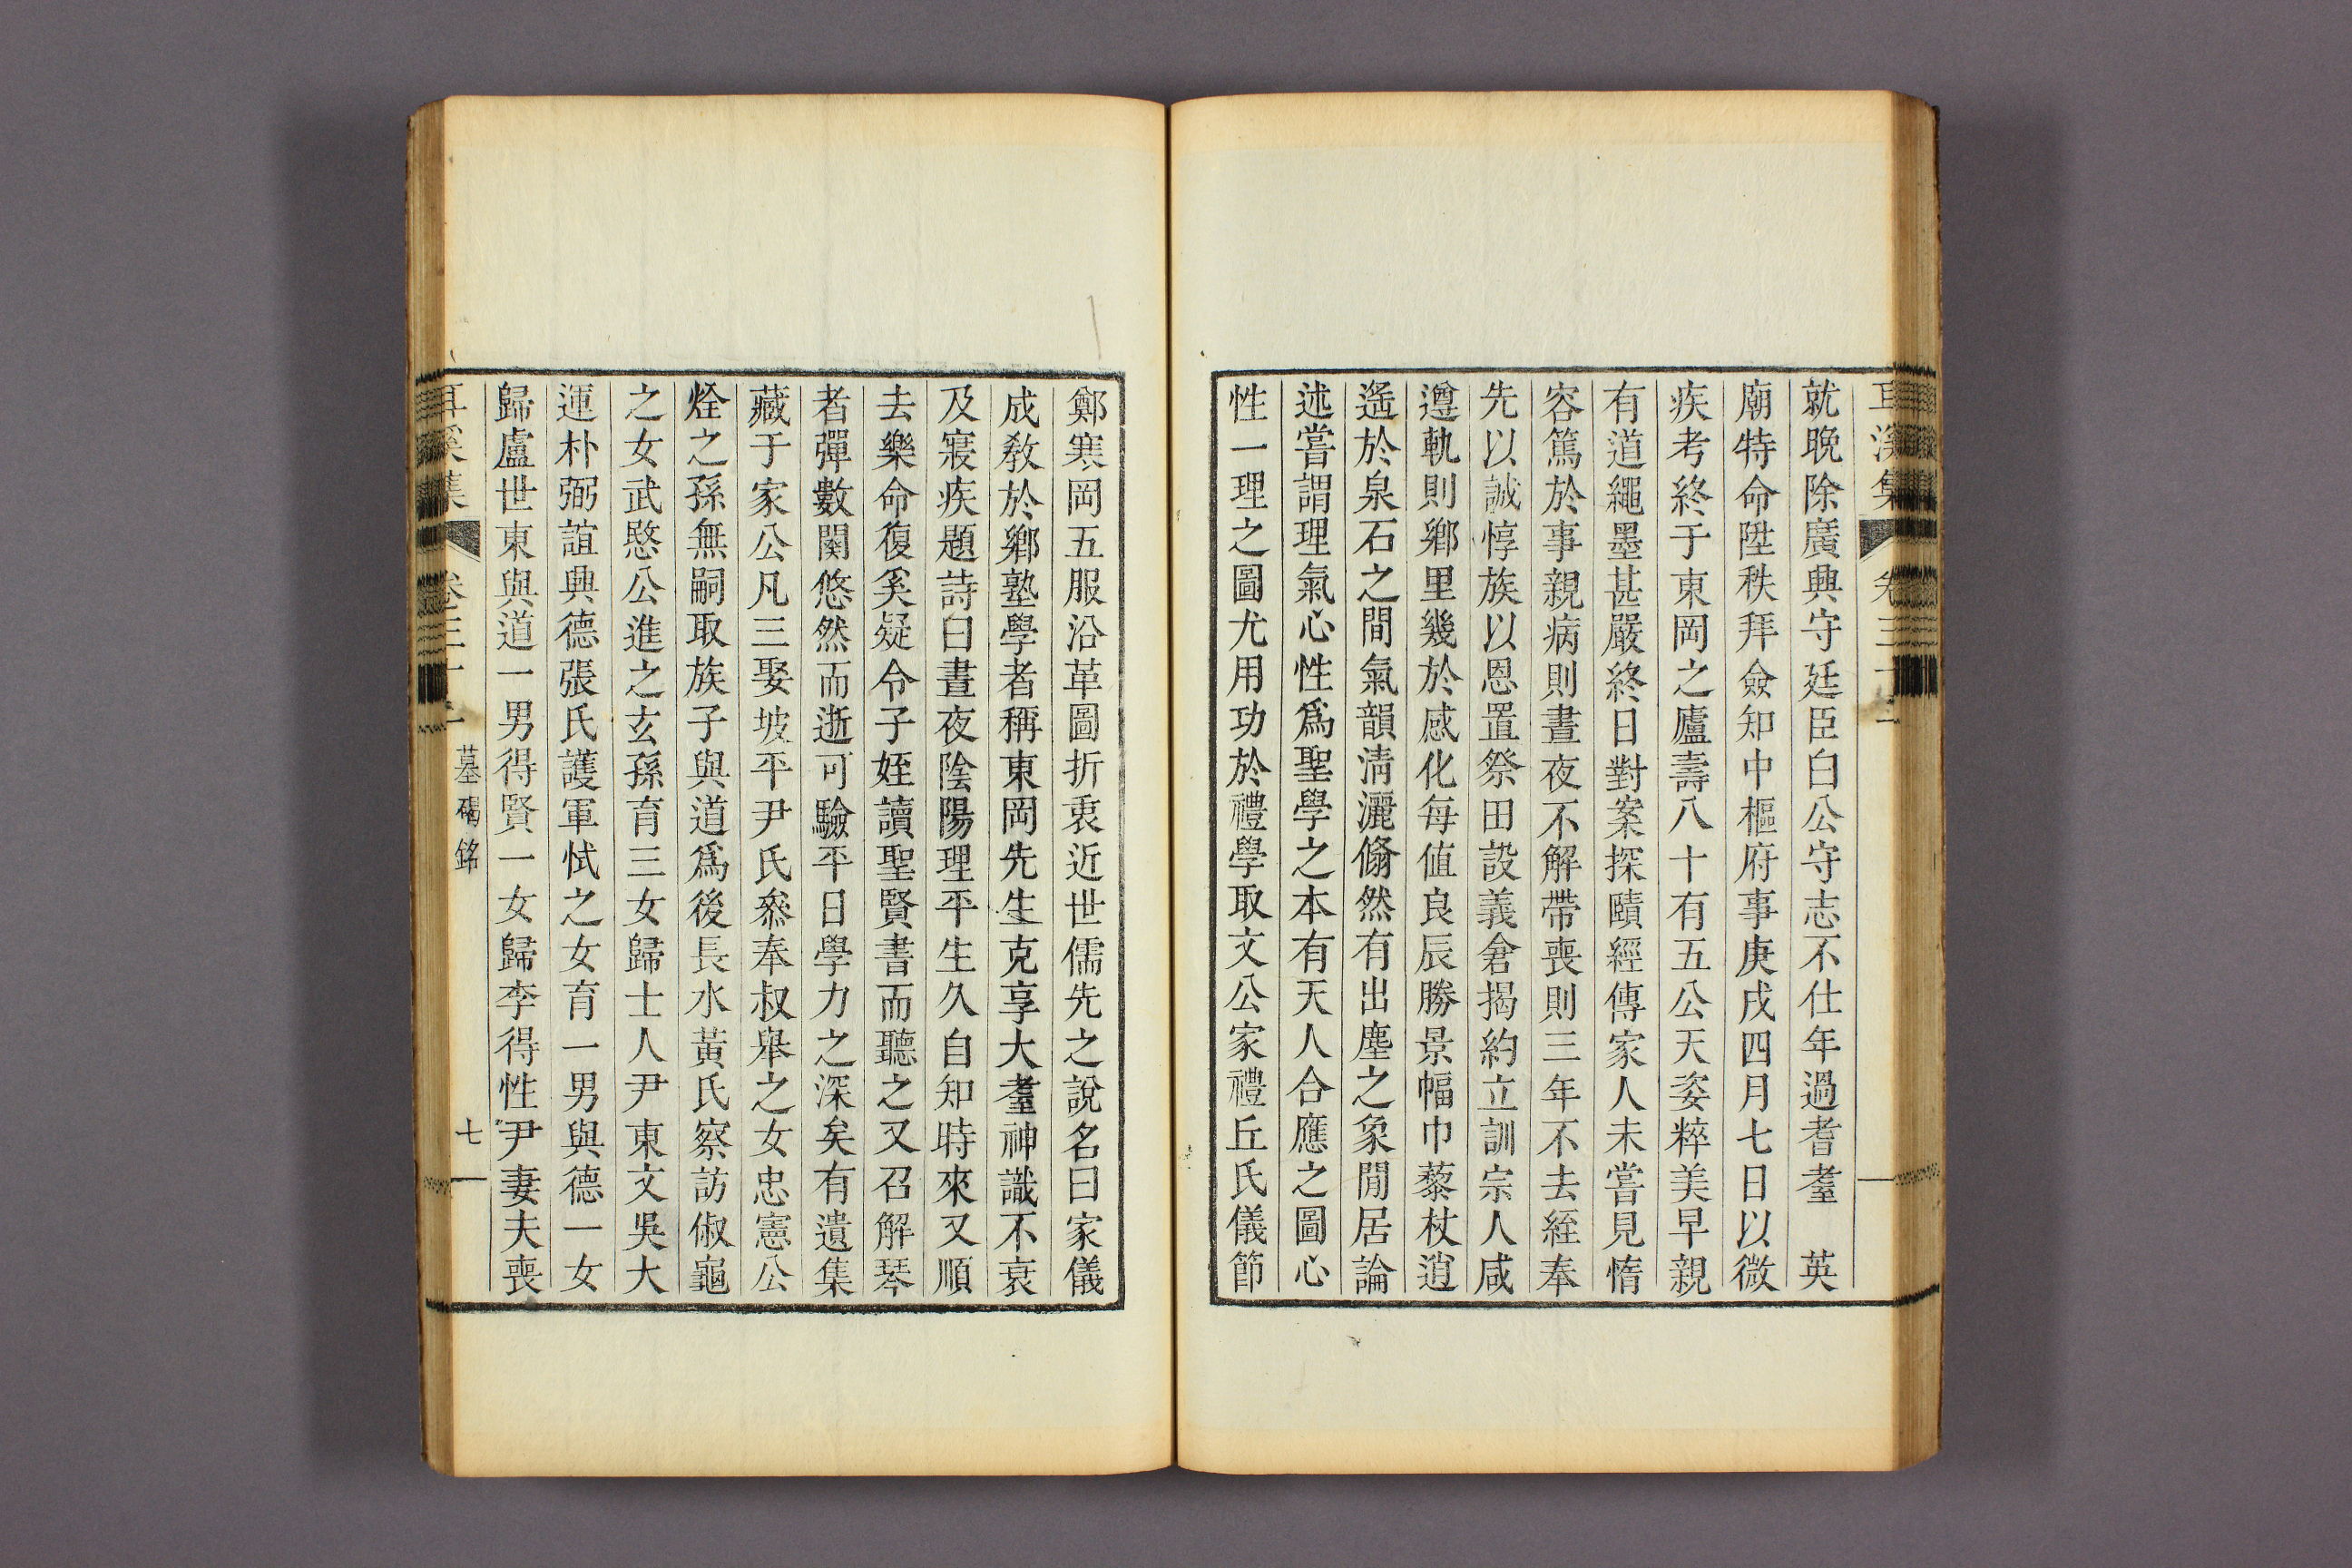 就晚除廣興守廷臣白公守志不仕年過耆耋　英
廟特命陞秩拜僉知中樞府事庚戌四月七日以微
疾考終于東岡之廬壽八十有五公天姿粹美早親
有道繩墨甚嚴終日對案探賾經傳家人未嘗見惰
容篤於事親病則晝夜不解帶喪則三年不去絰奉
先以誠惇族以恩置祭田設義倉揭約立訓宗人咸
遵軌則鄉里幾於感化每值良辰勝景幅巾藜杖逍
遙於泉石之間氣韻淸灑翛然有出塵之象閒居論
述嘗謂理氣心性爲聖學之本有天人合應之圖心
性一理之圖尤用功於禮學取文公家禮丘氏儀節
鄭寒岡五服沿革圖折衷近世儒先之說名曰家儀
成教於鄉塾學者稱東岡先生克享大耋神識不衰
及寢疾題詩曰晝夜陰陽理平生久自知時來又順
去樂命復奚疑令子姪讀聖賢書而聽之又召解琴
者彈數闋悠然而逝可驗平日學力之深矣有遺集
藏于家公凡三娶坡平尹氏叅奉叔舉之女忠憲公
烇之孫無嗣取族子與道爲後長水黃氏察訪俶龜
之女武愍公進之玄孫育三女歸士人尹東文吳大
運朴弼誼興德張氏護軍恜之女育一男與德一女
歸盧世東與道一男得賢一女歸李得性尹妻夫喪
耳溪集　卷三十　墓碣銘　七